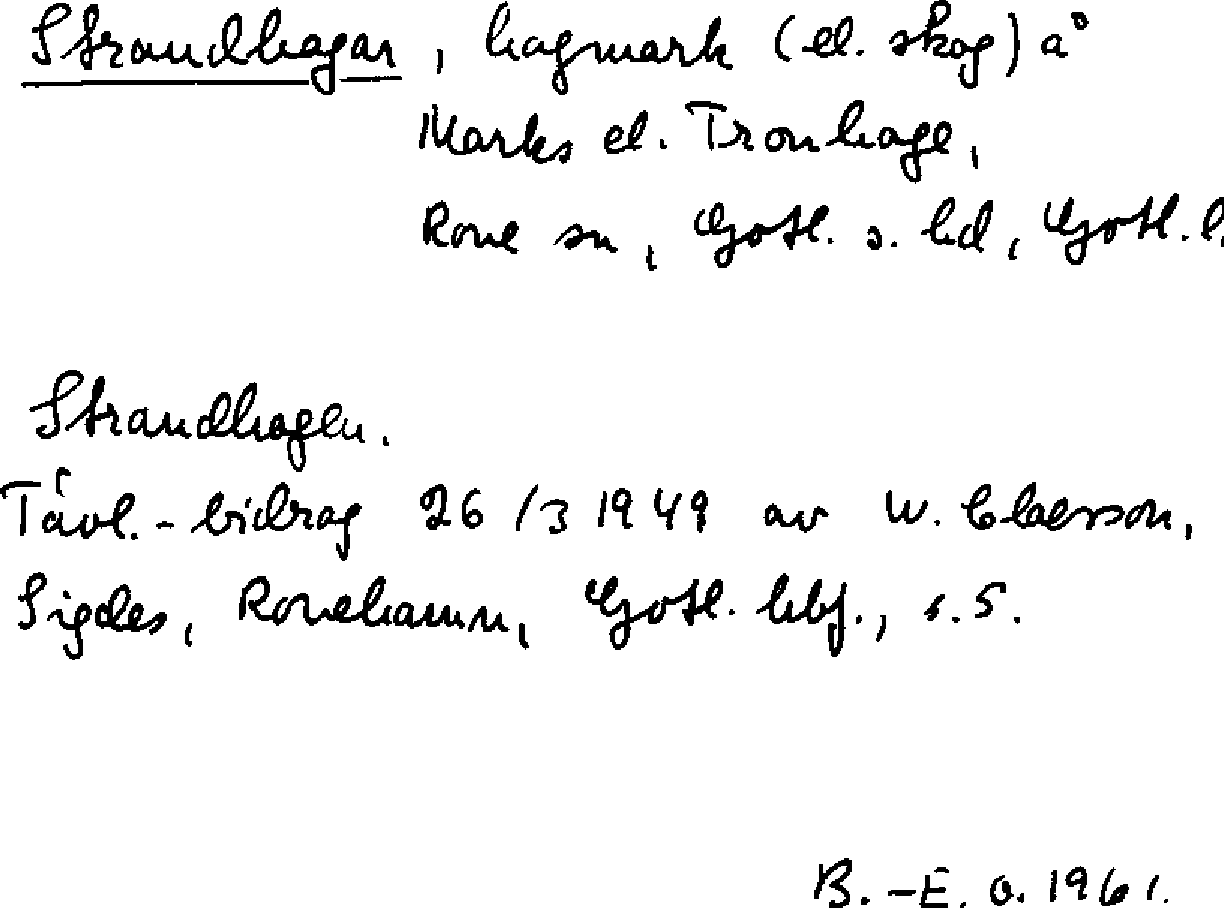 Strandhagar, hagmark (el. skog) å
Marks el. Tronhage,
Rone sn, Gotl. s. hd, Gotl. l.
Strandhagen.
Tävl.-bidrag 26/3 1949 av W. Claesson,
Sigdes, Ronehamn, Gotl. hbf., s. 5.
B.-E. O. 1961.